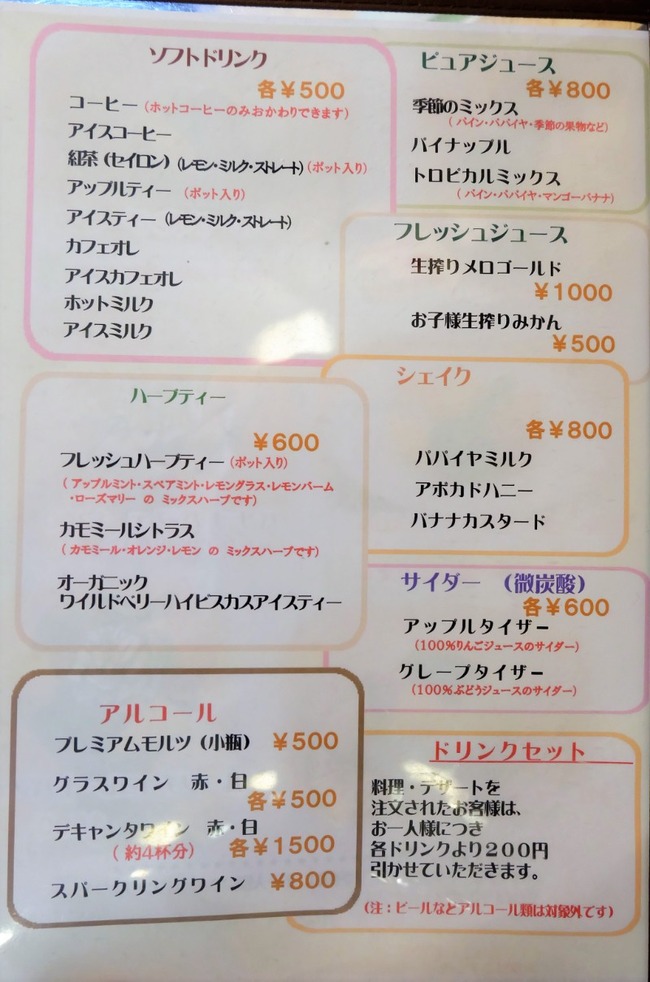 ソフトドリンク
各￥500
コーヒー(ホットコーヒーのみおかわりできます)
アイスコーヒー
紅茶(セイロン)(レモン・ミルク・ストレート)(ポット入り)
アップルティー (ポット入り)
アイスティー(レモン・ミルク・ストレート)
カフェオレ
アイスカフェオレ
ホットミルク
アイスミルク
ピュアジュース
各￥800
季節のミックス
(パイン・パパイヤ・季節の果物など)
パイナップル
トロピカルミックス
(パイン・パパイヤ・マンゴーバナナ)
フレッシュジュース
生搾りメロゴールド
￥1000
お子様生搾りみかん
￥500
ハーブティー
￥600
フレッシュハーブティー(ポット入り)
(アップルミント・スペアミント・レモングラス・レモンバーム
・ローズマリー の ミックスハーブです)
カモミールシトラス
(カモミール・オレンジ・レモン の ミックスハーブです)
オーガニック
ワイルドベリーハイビスカスアイスティー
シェイク
各￥800
パパイヤミルク
アボカドハニー
バナナカスタード
サイダー (微炭酸)
各￥600
アップルタイザー
(100%りんごジュースのサイダー)
グレープタイザー
(100%ぶどうジュースのサイダー)
アルコール
プレミアムモルツ(小瓶) ￥500
グラスワイン 赤・白
各￥500
デキャンタワイン 赤・白
(約4杯分) 各￥1500
スパークリングワイン ￥800
ドリンクセット
料理・デザートを
注文されたお客様は、
お一人様につき
各ドリンクより200円
引かせていただきます。
(注：ビールなどアルコール類は対象外です)